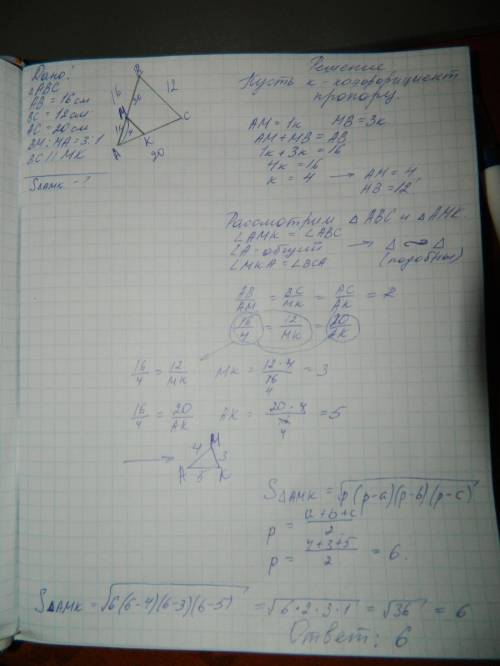 Дано:
△ABC
AB = 16 см
BC = 12 см
AC = 20 см
BM : MA = 3:1
BC || MK
S△AMK - ?
B
16
12
3k
M
1k
4
C
A
K
20
Решение
Пусть k - коэффициент
пропорц.
AM = 1k MB = 3k
AM + MB = AB
1k + 3k = 16
4k = 16
k = 4 → AM = 4
MB = 12
Рассмотрим △ABC и △AMK
∠AMK = ∠ABC
∠A = общий → △ ∾ △
∠MKA = ∠BCA (подобны)
AB/AM = BC/MK = AC/AK = 2
16/4 = 12/MK = 20/AK
16/4 = 12/MK MK = 12·4/16 = 3
4
16/4 = 20/AK AK = 20·4/16 = 5
4
→
M
4
3
A
5
K
S△AMK = √p(p-a)(p-b)(p-c)
p = a+b+c/2
p = 4+3+5/2 = 6.
S△AMK = √6(6-4)(6-3)(6-5) = √6·2·3·1 = √36 = 6
Ответ: 6